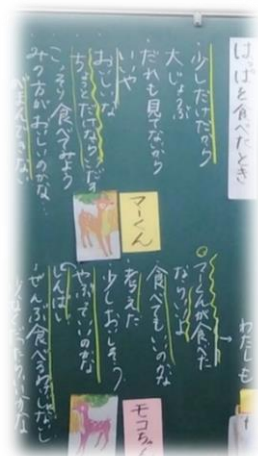 はっぱを食べたとき
・少しだけだから
大じょぶ
だれも見てないから
いいや
おいしいな
ちょとだけならいいだろ
こっそり食べてみよう
みつ方がおいしいのかな
マーくん
マーくんが食べた
ならいいよ
食べてもいいのかな
考えた
少しおいしそう
やぶっていいのかな
しんぱい
・ぜんぶ食べるわけじゃないし
わたしも
モコちゃん